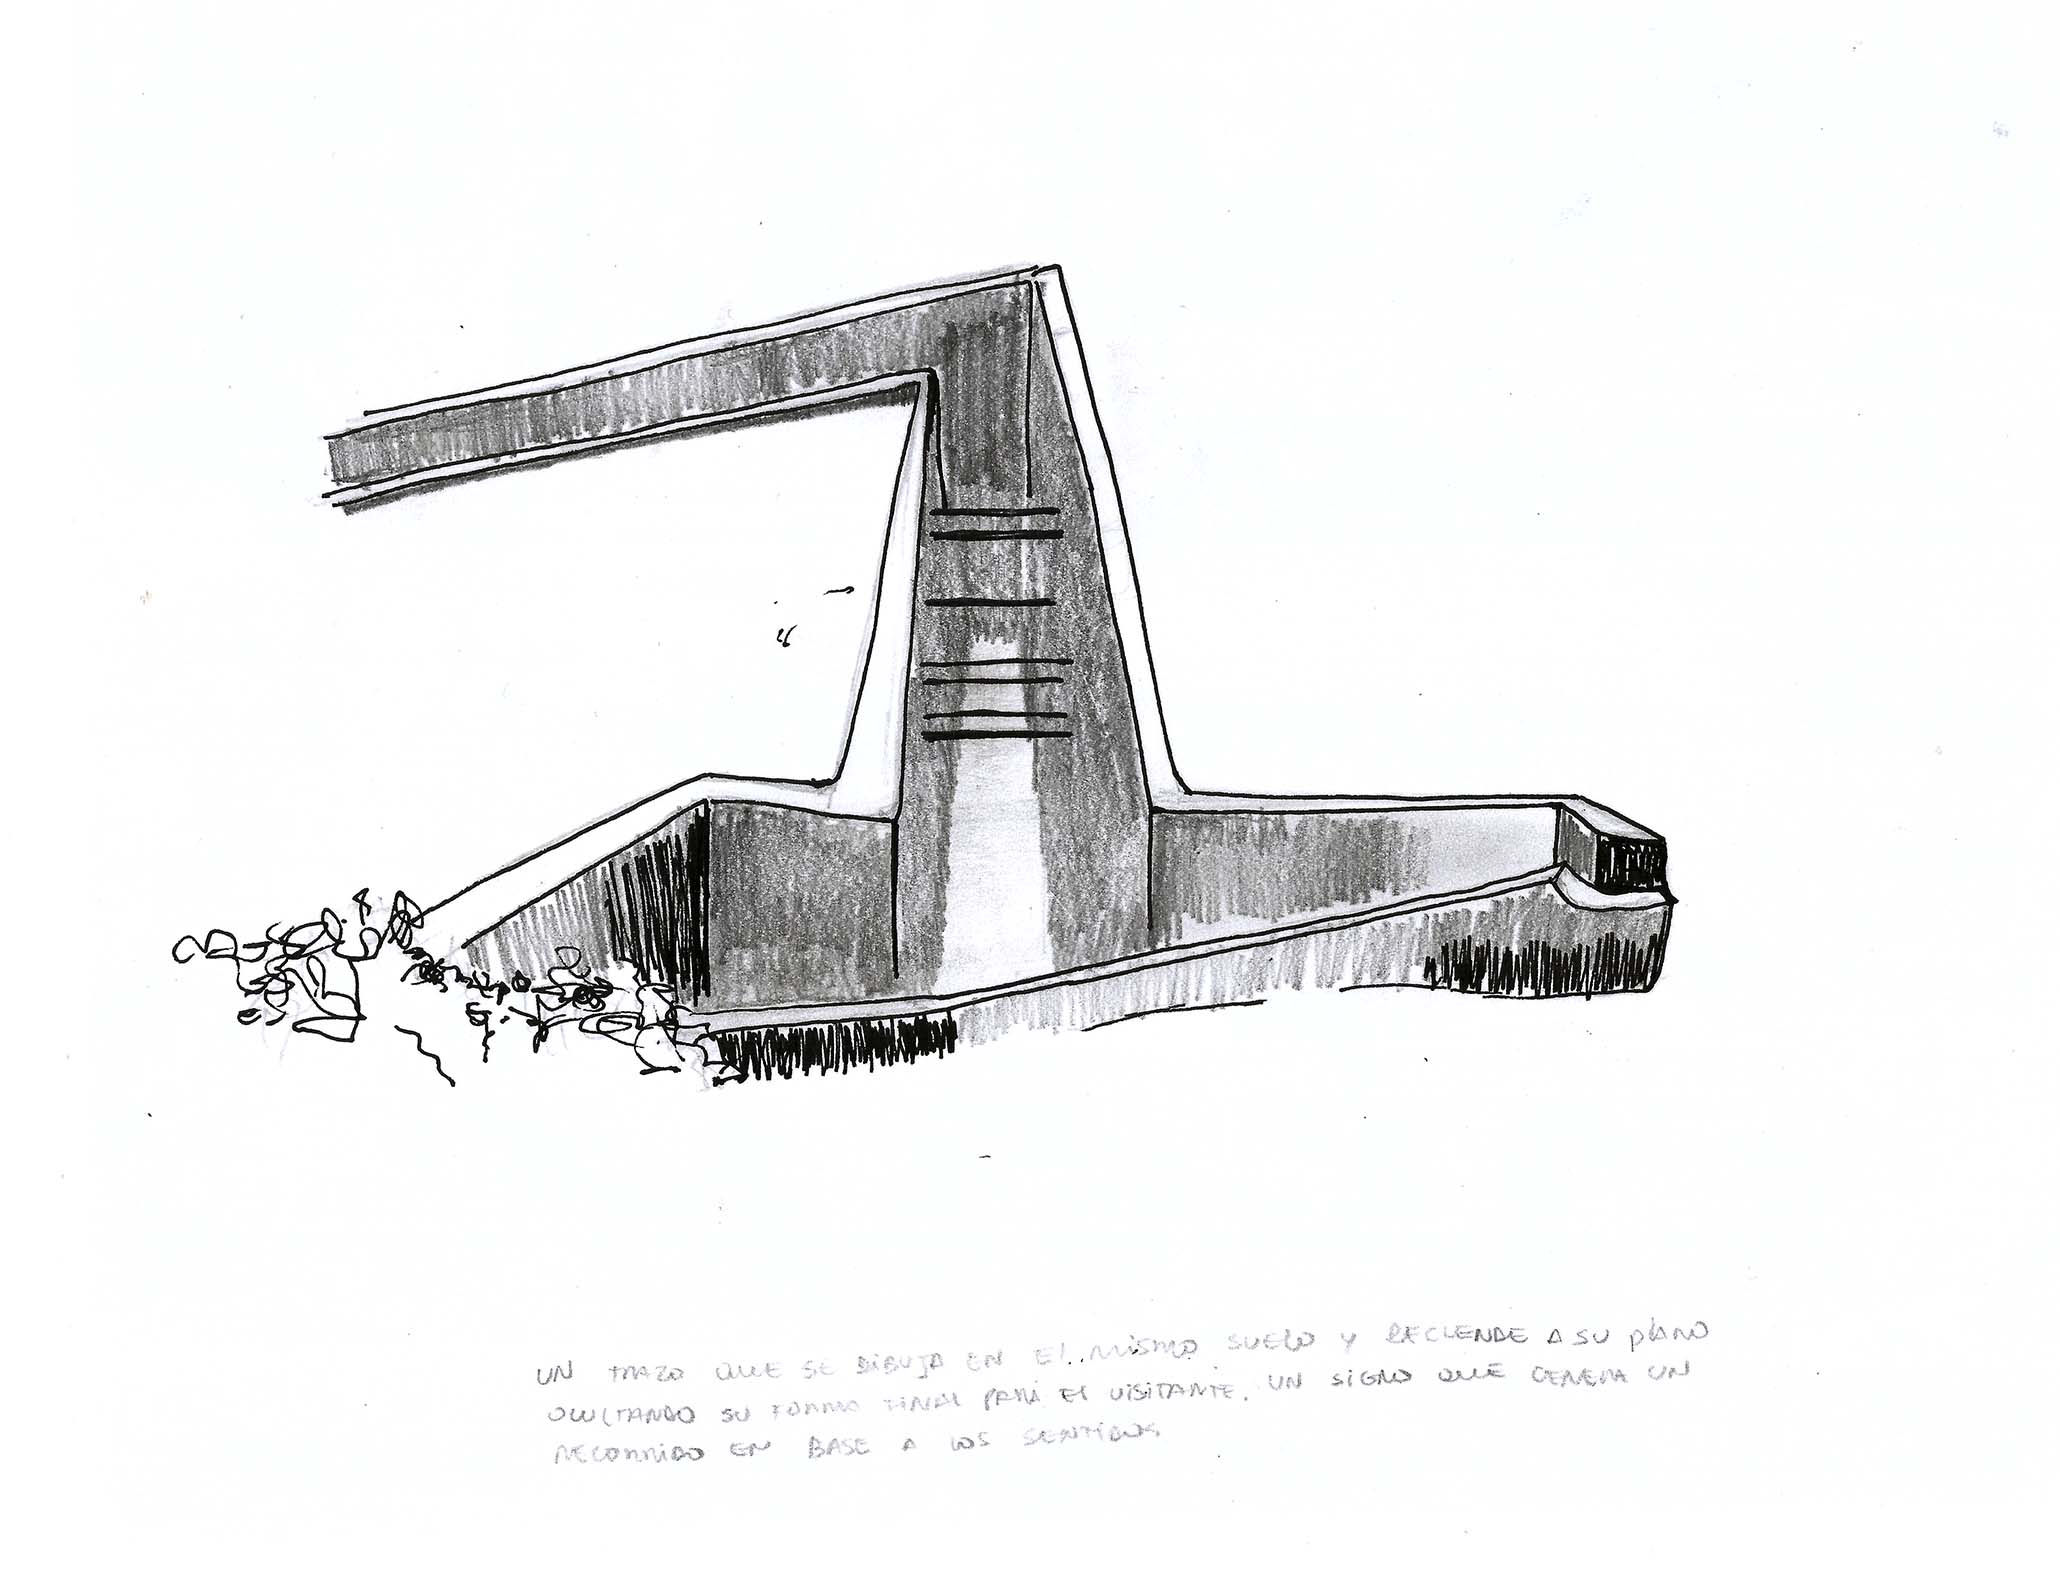 UN TRAZO QUE SE DIBUJA EN EL MISMO SUELO Y DECIENDE A SU PLANO
OCULTANDO SU FORMA FINAL PARA EL VISITANTE. UN SIGNO QUE GENERA UN
RECORRIDO EN BASE A LOS SENTIDOS.